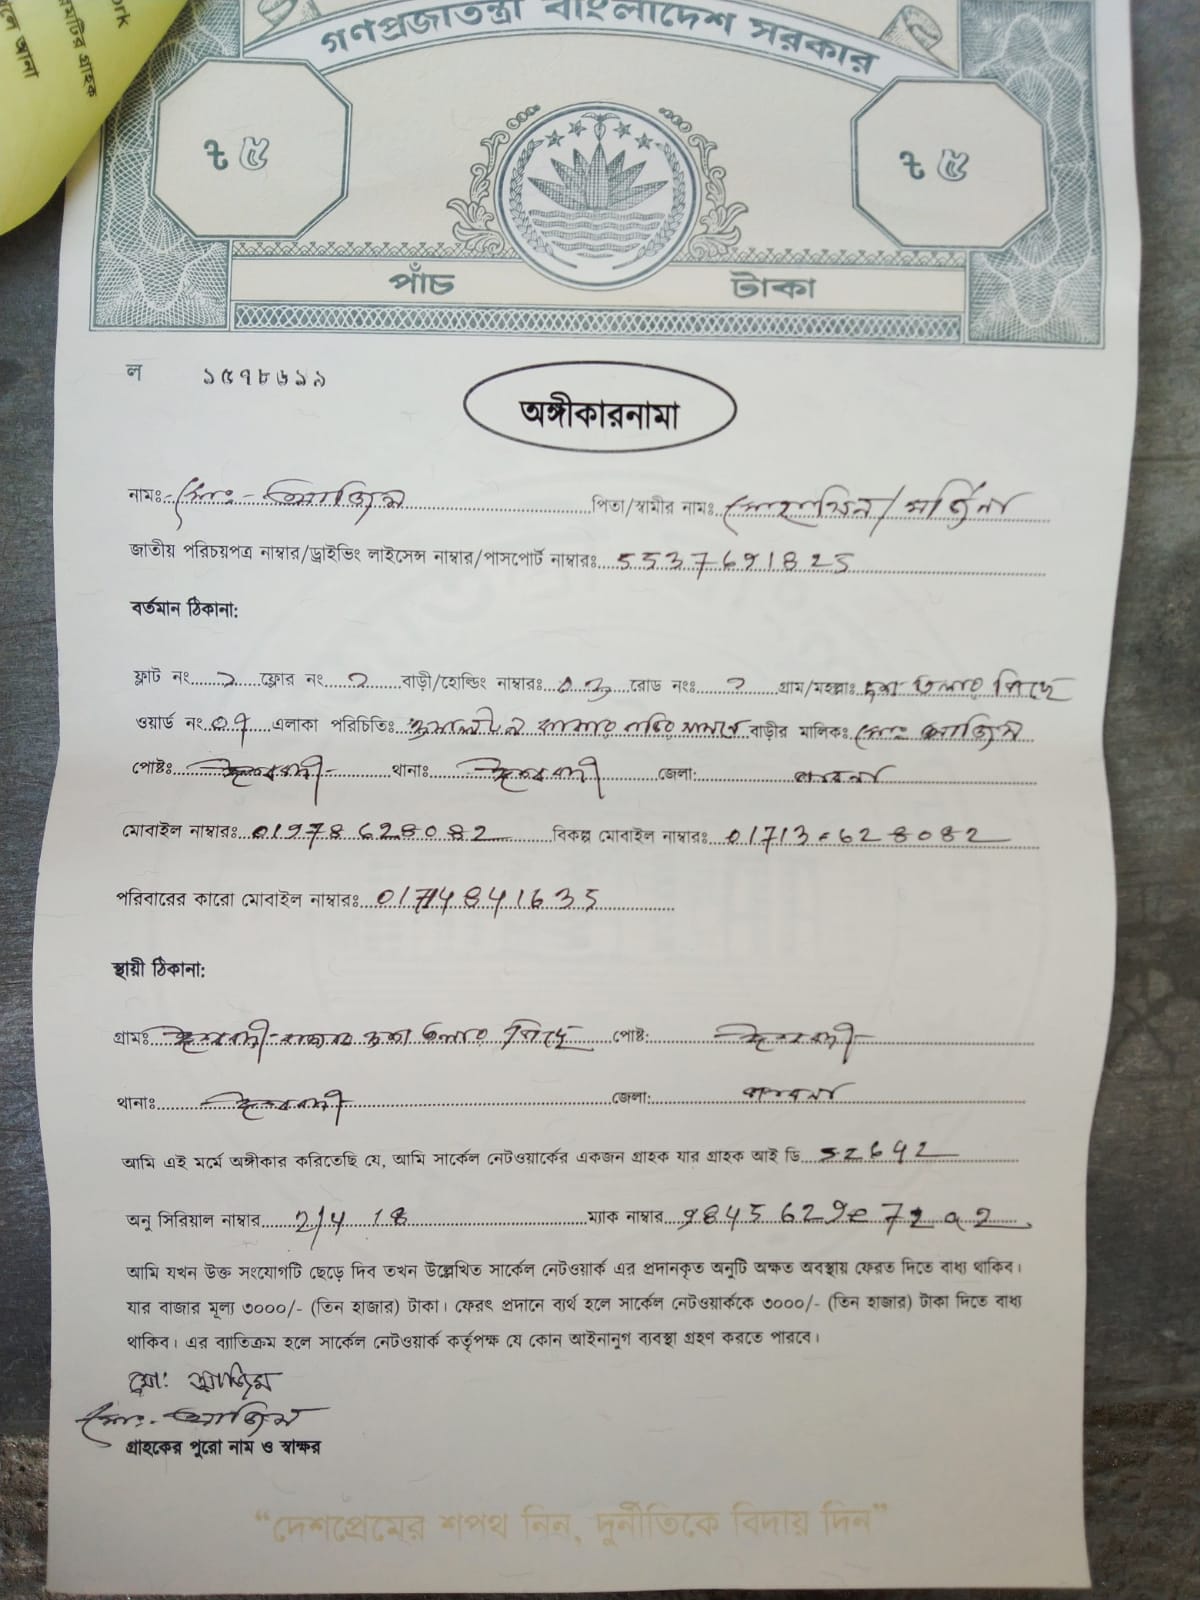 গণপ্রজাতন্ত্রী বাংলাদেশ সরকার
৳ ৫
৳ ৫
পাঁচ টাকা
ল ১৫৭৮৬১৯
অঙ্গীকারনামা
নামঃ- মোঃ- আজিম পিতা/স্বামীর নামঃ মোহাম্মিন/মর্জিনা
জাতীয় পরিচয়পত্র নাম্বার/ড্রাইভিং লাইসেন্স নাম্বার/পাসপোর্ট নাম্বারঃ 5537691825
বর্তমান ঠিকানা:
ফ্লাট নং ফ্লোর নং ২ বাড়ী/হোল্ডিং নাম্বারঃ রোড নংঃ গ্রাম/মহল্লাঃ তলার পিছে
ওয়ার্ড নং 07 এলাকা পরিচিতিঃ বাড়ীর মালিকঃ মোঃ আজিম
পোষ্টঃ ঈশ্বরদী থানাঃ ঈশ্বরদী জেলা: পাবনা
মোবাইল নাম্বারঃ 01978628082 বিকল্প মোবাইল নাম্বারঃ 01713-628082
পরিবারের কারো মোবাইল নাম্বারঃ 01714841635
স্থায়ী ঠিকানা:
গ্রামঃ ঈশ্বরদী বাজার তলার পিছে পোষ্ট: ঈশ্বরদী
থানাঃ ঈশ্বরদী জেলা: পাবনা
আমি এই মর্মে অঙ্গীকার করিতেছি যে, আমি সার্কেল নেটওয়ার্কের একজন গ্রাহক যার গ্রাহক আই ডি 52642
অনু সিরিয়াল নাম্বার 2/4 18 ম্যাক নাম্বার 9845629e72a2
আমি যখন উক্ত সংযোগটি ছেড়ে দিব তখন উল্লেখিত সার্কেল নেটওয়ার্ক এর প্রদানকৃত অনুটি অক্ষত অবস্থায় ফেরত দিতে বাধ্য থাকিব।
যার বাজার মূল্য ৩০০০/- (তিন হাজার) টাকা। ফেরৎ প্রদানে ব্যর্থ হলে সার্কেল নেটওয়ার্ককে ৩০০০/- (তিন হাজার) টাকা দিতে বাধ্য
থাকিব। এর ব্যাতিক্রম হলে সার্কেল নেটওয়ার্ক কর্তৃপক্ষ যে কোন আইনানুগ ব্যবস্থা গ্রহণ করতে পারবে।
মো: আজিম
মোঃ- আজিম
গ্রাহকের পুরো নাম ও স্বাক্ষর
“দেশপ্রেমের শপথ নিন, দুর্নীতিকে বিদায় দিন”